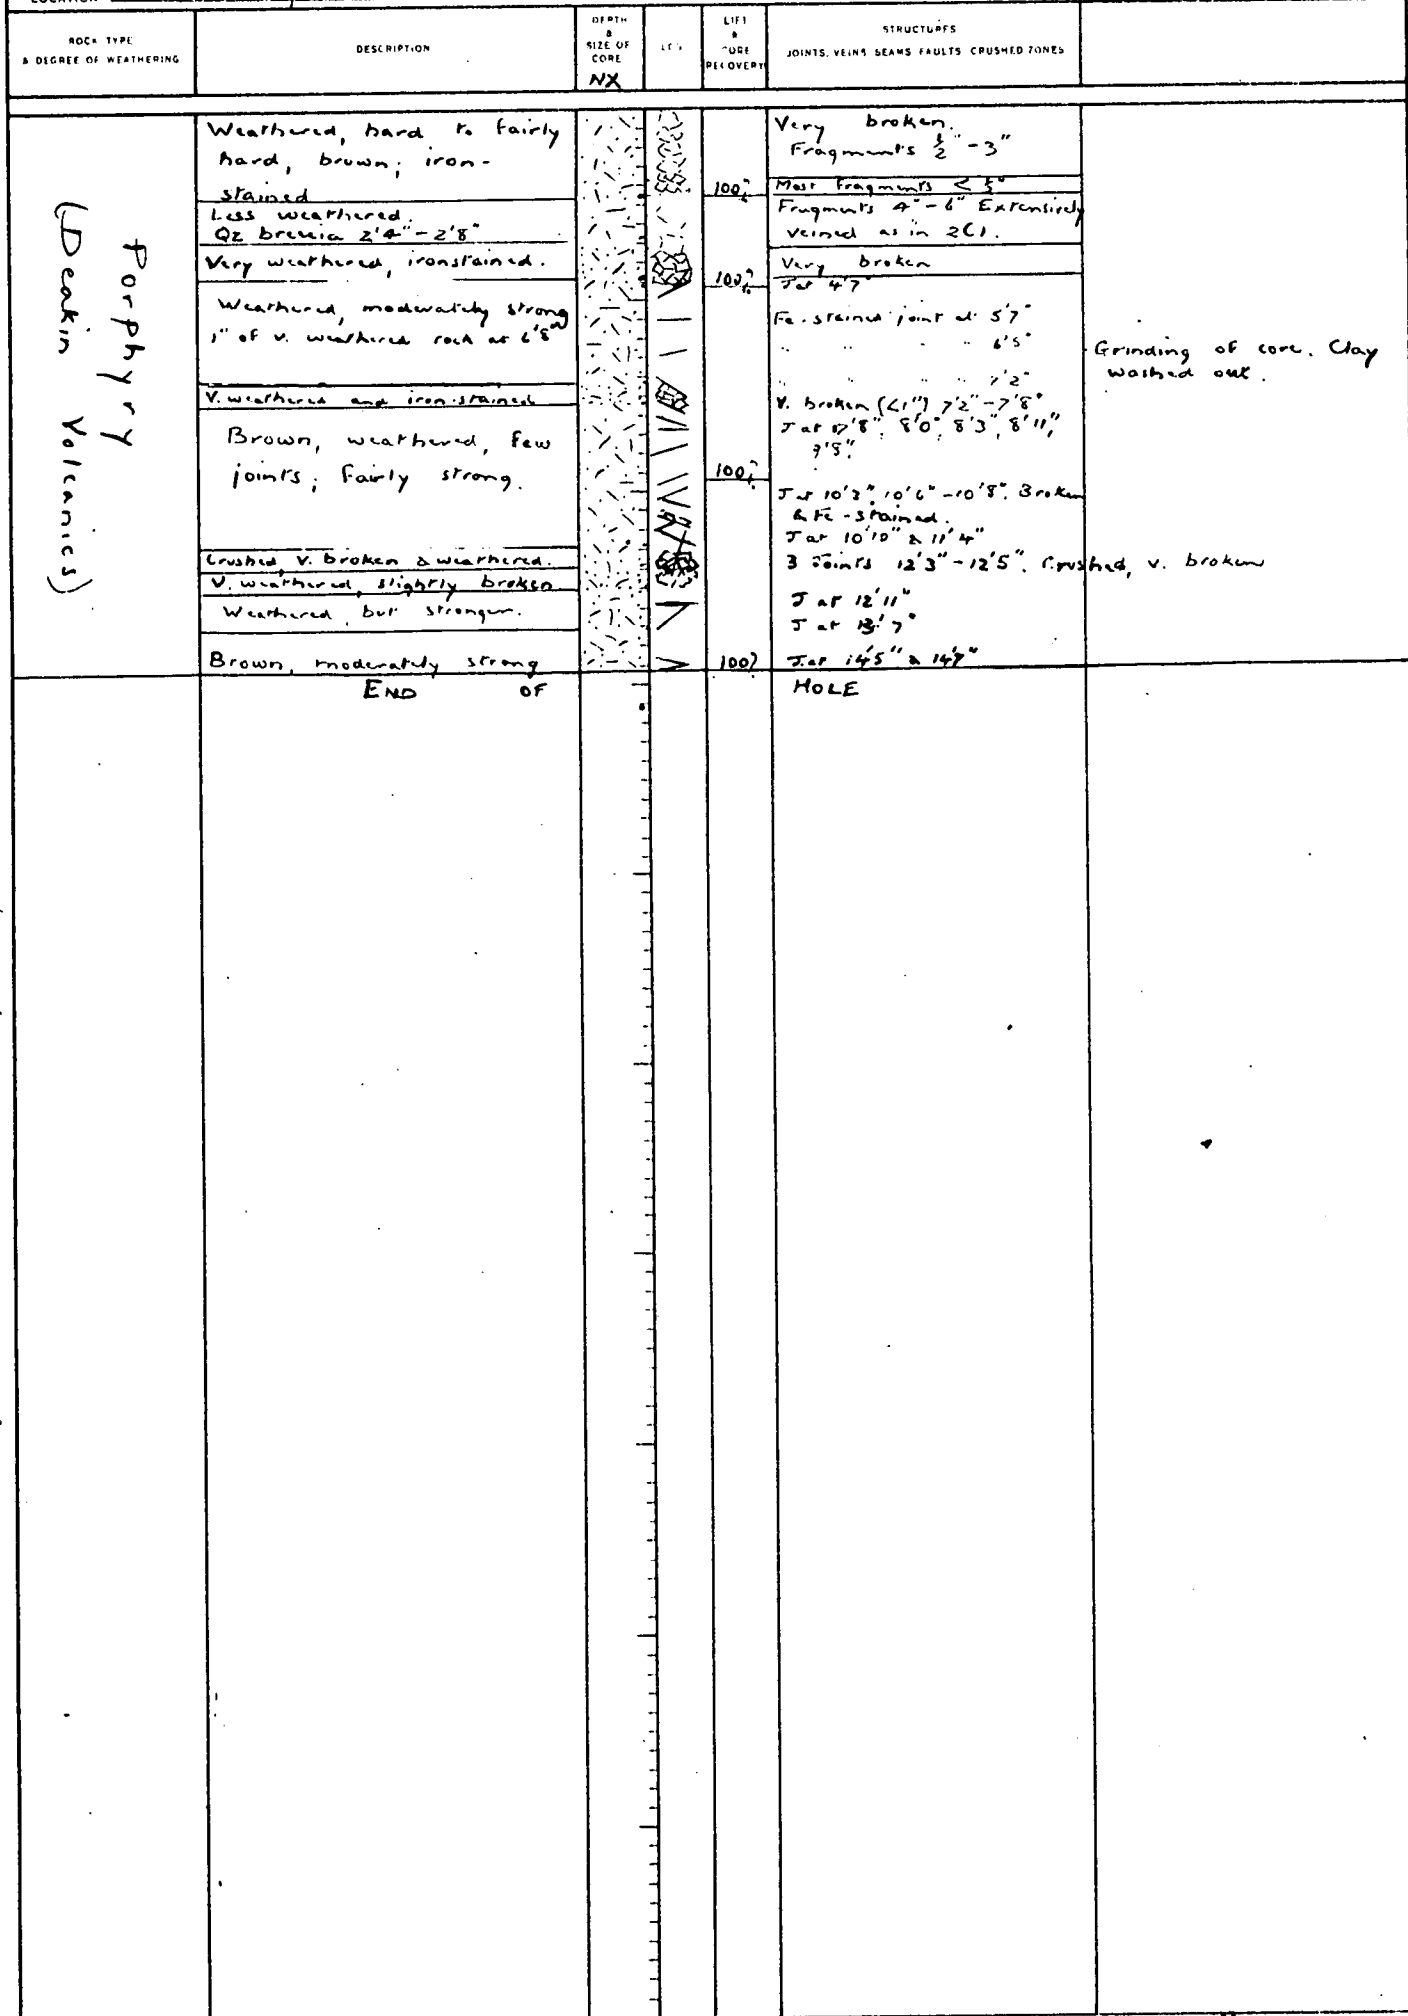 ROCK TYPE
& DEGREE OF WEATHERING
DESCRIPTION
DEPTH
&
SIZE OF
CORE
NX
LOG
LIFT
&
CORE
RECOVERY
STRUCTURES
JOINTS, VEINS SEAMS FAULTS CRUSHED ZONES
Porphyry
(Deakin Volcanics)
Weathered, hard to fairly
hard, brown; iron-
stained
Less weathered.
Qz breccia 2'4" - 2'8"
Very weathered, ironstained.
Weathered, moderately strong
1" of v. weathered rock at
V. weathered and iron-stained
Brown, weathered, few
joints; fairly strong.
Crushed, v. broken & weathered.
V. weathered, slightly broken
Weathered, but stronger.
Brown, moderately strong
100%
100%
100%
100%
Very broken.
Fragments ½" - 3"
Most fragments <
Fragments 4" - 6" Extensively
veined as in 2C1.
Very broken
J at 4'7"
Fe-stained joint at 5'7"
" " " 6'5"
" " " " 7'2"
V. broken (<1") 7'2" - 7'8"
J at 7'8", 8'0", 8'3", 8'11",
J at 10'6" - 10'8". Broken
& Fe-stained.
J at 10'10" & 11'4"
3 Joints 12'3" - 12'5". Crushed, v. broken
J at 12'11"
J at 13'7"
J at 14'5" & 14'9"
Grinding of core. Clay
washed out.
END OF HOLE